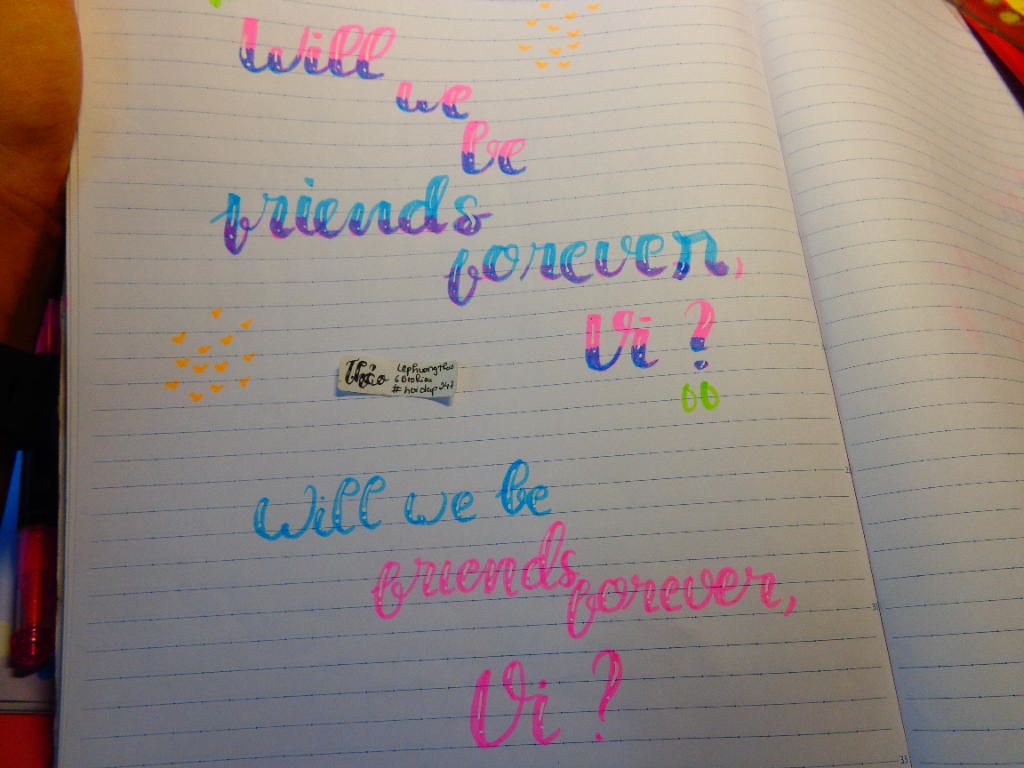 Will
we
be
friends
forever,
Vi ?
Thảo
lephuongthao
#hoidap247
Will we be
friends
forever,
Vi ?
35